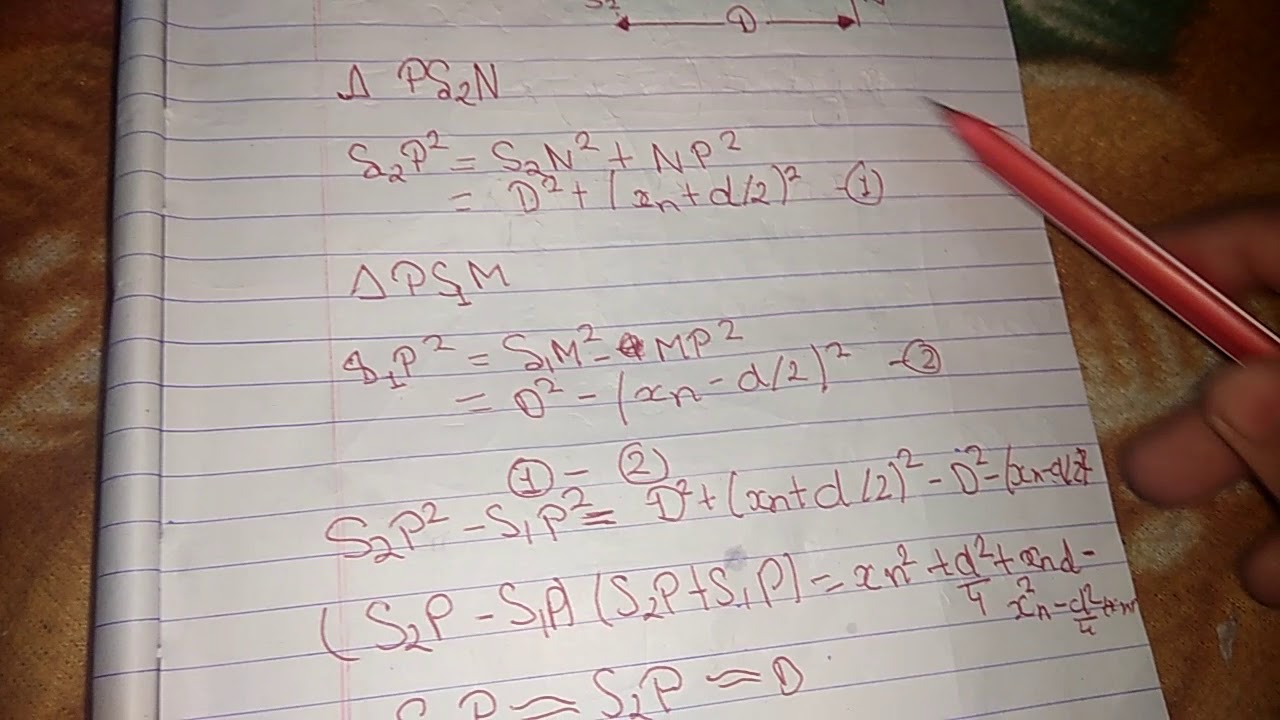 S₂ D
Δ PS₂N
S₂P² = S₂N² + NP²
= D² + (xn + d/2)² - ①
Δ PS₁M
S₁P² = S₁M² - MP²
= D² - (xn - d/2)² - ②
① - ②
S₂P² - S₁P² = D² + (xn + d/2)² - D² - (xn - d/2)²
(S₂P - S₁P) (S₂P + S₁P) = xn² + d²/4 + xnd -
x²n - d²/4
S₁P ≈ S₂P ≈ D